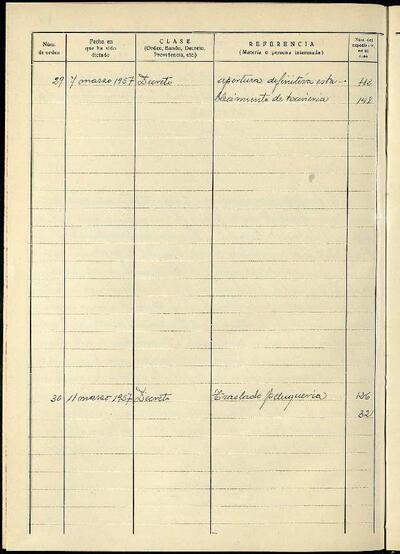 Núm. de orden
Fecha en que ha sido dictado
CLASE
(Orden, Bando, Decreto, Providencia, etc.)
REFERENCIA
(Materia o persona interesada)
Núm. del expediente
29 7 marzo 1957 Decreto apertura definitiva esta-
blecimiento de tocineria 142
30 11 marzo 1957 Decreto Traslado peluqueria 136
32